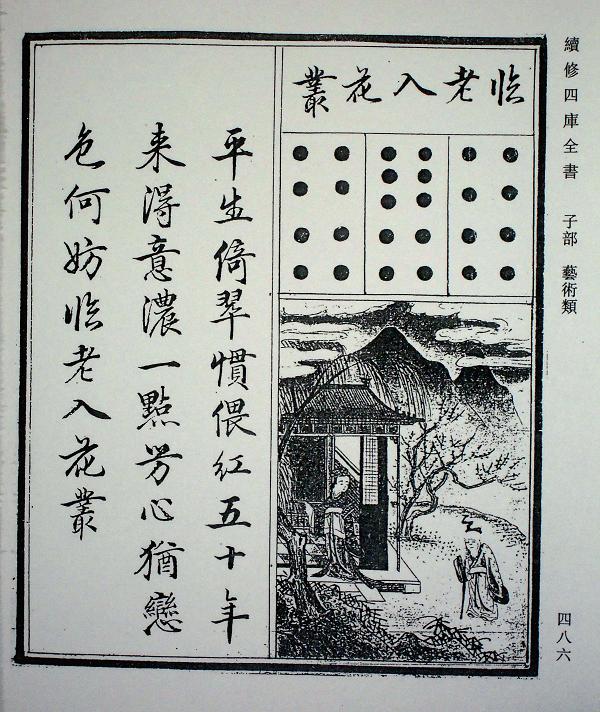 續修四庫全書 子部 藝術類
四八六
臨老入花叢
平生倚翠慣偎紅五十年
来得意濃一點芳心猶戀
色何妨臨老入花叢